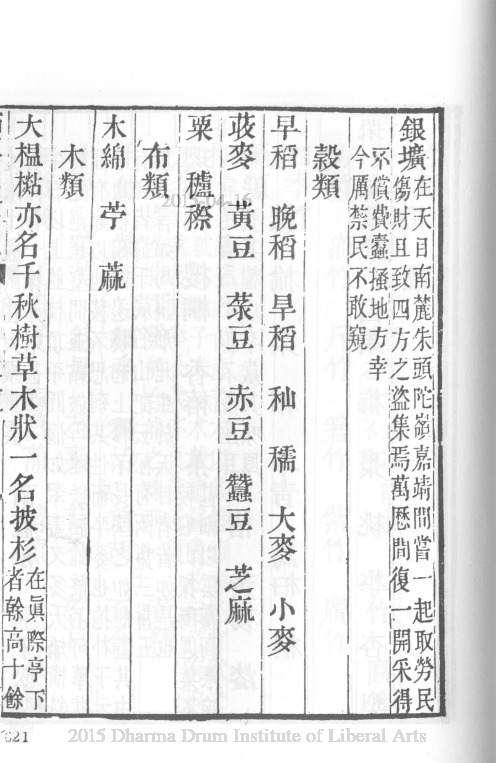 銀壙在天目南麓朱頭陀嶺嘉靖間嘗一起取勞民
傷財且致四方之盜集焉萬歷間復一開采得
不償費蠧搔地方幸
今厲禁民不敢窺
榖類
早稻 晚稻 旱稻 秈 稬 大麥 小麥
荍麥 黃豆 菉豆 赤豆 蠶豆 芝麻
粟 穭穄
布類
木綿 苧 蔴
木類
大榅㯚亦名千秋樹草木狀一名披杉在眞際亭下
者榦高十餘
2015-04-16
621
2015 Dharma Drum Institute of Liberal Arts